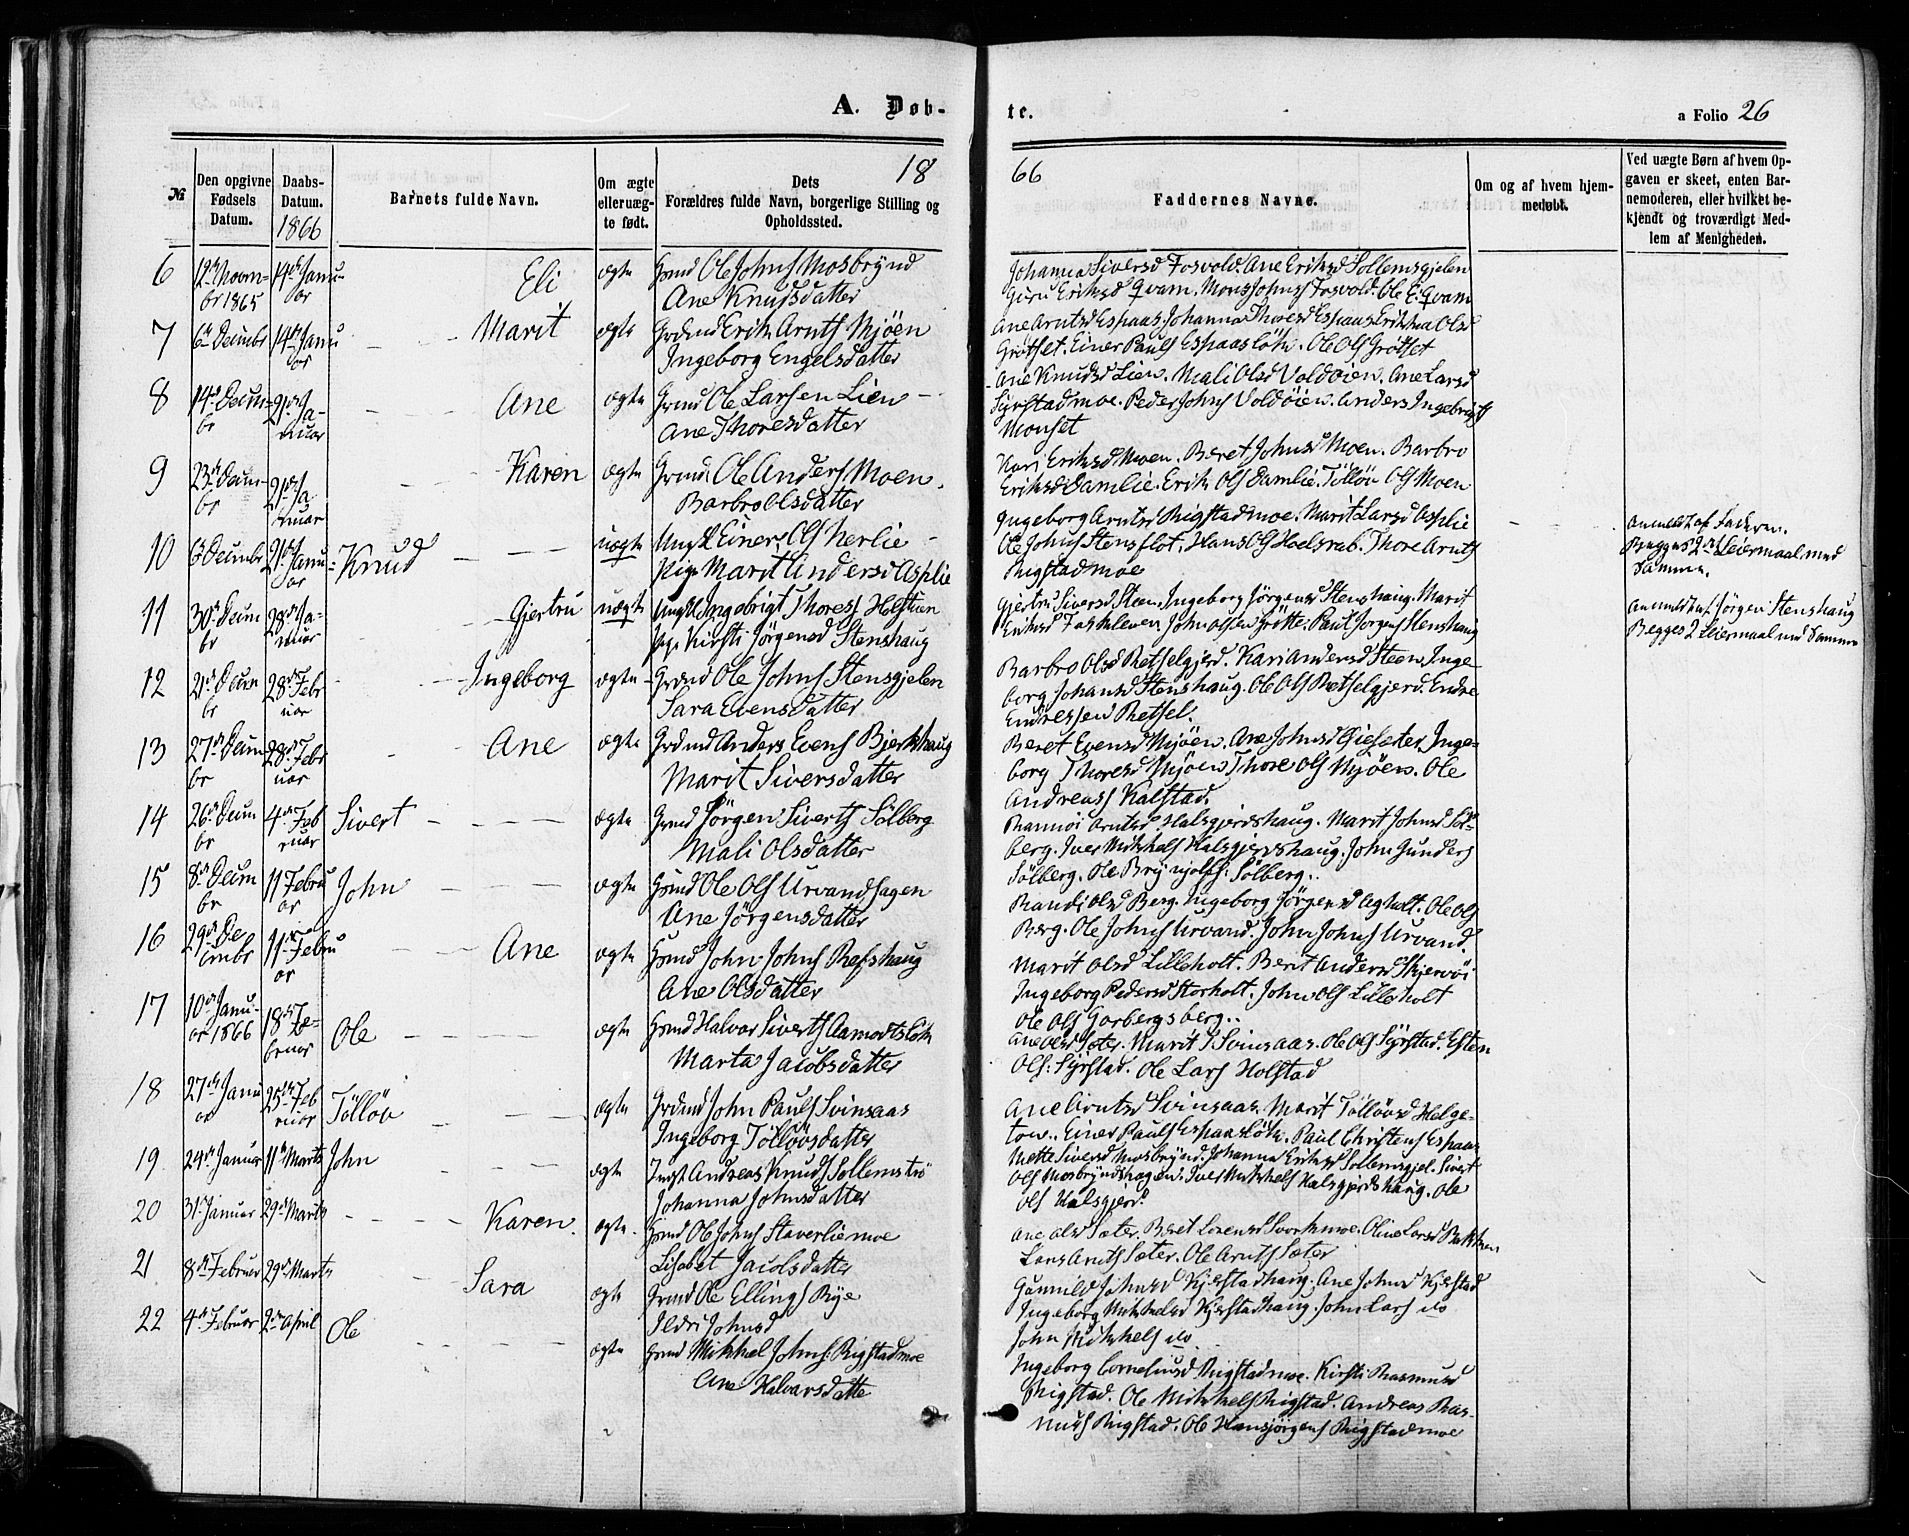 A. Døb-
te.
a Folio 26
№
Den opgivne Fødsels Datum.
Daabs-Datum. 1866
Barnets fulde Navn.
Om ægte eller uæg-te født.
18
Dets Forældres fulde Navn, borgerlige Stilling og Opholdssted.
66
Faddernes Navne.
Om og af hvem hjem-medøbt.
Ved uægte Børn af hvem Op-gaven er skeet, enten Bar-nemoderen, eller hvilket be-kjendt og troværdigt Med-lem af Menigheden.
6 12te Novem-br 1865 14de Janu-ar Eli ægte Grmd Ole Johns Mosbrynd
Ane Knudsdatter
Johanna Siversd Fosvold. Ane Eriksd Sollemsgjelen
Guru Eriksd Qvam. Mons Johns Fosvold. Ole E. Qvam
7 6te Decmbr 14de Janu-ar Marit ægte Grdmd Erik Arnts Mjöen
Ingeborg Engelsdatter
Ane Arntsd Espaas. Johanna Thoresd Espaas. Erikka Olsd
Grötset. Einer Pauls Espaaslökk. Ole Ols Grötset
8 14de Decm-br 21de Ja-nuar Ane ægte Grmd Ole Larsen Lien
Ane Thoresdatter
Ane Knudsd Lien. Mali Olsd Voldöien. Ane Larsd
Syrstadmoe. Peder Johns Voldöien. Anders Ingebrigts
Monset
9 23de Decm-br 21de Ja-nuar Karen ægte Grmd. Ole Anders. Moen.
Barbro Olsdatter
Kari Eriksd Moen. Beret Johnsd Moen. Barbro
Eriksd Damlie. Erik Ols Damlie. Töllöv Ols Moen
10 6te Decmbr 21de Janu-ar Knud uægte Ungkl Einer Ols Nerlie
Pige Marit Andersd Asplie
Ingeborg Arntsd Rigstadmoe. Marit Larsd Asplie
Ole Johns Stensflot. Hans Ols Hoelsrab. Thore Arnts
Rigstadmoe
Anmeldt af Faderen.
Begges 2det Leiermaal med
Samme.
11 30te Decm-br 28de Ja-nuar Gjertru uægte Ungkl Ingebrigt Thores Holstuen
Pige Kirsti Jörgensd Stenshaug
Gjertru Siversd Steen. Ingeborg Jörgensd Stenshaug. Marit
Eriksd Foskleven. John Olsen Grötte. Paul Jörgens Stenshaug
Anmeldt af Jörgen Stenshaug
Begges 2 Leiermaal med Samme
12 21de Decm-br 28de Febr-uar Ingeborg ægte Grmd Ole Johns Stensgjelen
Sara Evensdatter
Barbro Olsd Retselgjerd. Kari Andersd Steen. Inge-
borg Johansd Stenshaug. Ole Ols Retselgjerd. Endre
Endressen Retsel.
13 27de Decm-br 28de Febr-uar Ane ægte Grdmd Anders Evens Bjerkhaug
Marit Siversdatter
Beret Evensd Mjöen. Ane Johnsd Giesæter. Inge-
borg Thoresd Mjöen. Thore Ols Mjöen. Ole
Andreass Kalstad.
14 26de Decm-br 4de Feb-ruar Sivert ægte Grmd Jörgen Siverts Sölberg
Mali Olsdatter
Rannöi Arntsd Halsgjerdshaug. Marit Johnsd Söl-
berg. Iver Mikkels Halsgjerdshaug. John Gunders
Sölberg. Ole Brynjolfs: Sölberg..
15 8de Decm-br 11 Febru-ar John ægte Grmd Ole Ols Urvandhagen
Ane Jörgensdatter
Randi Olsd Berg. Ingeborg Jörgensd Agholt. Ole Ols
Berg. Ole Johns Urvand. John Johns Urvand.
16 29de De-cmbr 11te Febru-ar Ane ægte Grmd John Johns Refshaug
Ane Olsdatter
Marit Olsd Lilleholt. Berit Andersd Skjervöi
Ingeborg Pedersd Storholt. John Ols Lilleholt
Ole Ols Gorbergsberg..
17 10de Janu-ar 1866 18de Fe-bruar Ole ægte Grmd Halvor Siverts Aamodtslökk
Marta Jacobsdatter
Ane Olsd Sæter. Marit I Svinsaas. Ole Ols Syrstad. Esten
Ols: Syrstad. Ole Lars Holstad
18 27de Janu-ar 25de Feb-ruar Töllöv ægte Grdmd John Pauls Svinsaas
Ingeborg Töllövsdatter
Ane Arntsd Svinsaas. Marit Töllövsd Helge-
ton.. Einer Pauls Espaaslökk. Paul Christens Espaas
19 24de Januar 11te Marts John ægte Indst Andreas Knuds Sollemströ
Johanna Johnsdatter
Mette Siversd Mosbrynd. Johanna Eriksd Sollemsgjel. Sivert
Ols Mosbryndshagen. Iver Mikkels Halsgjerdshaug. Ole
Ols Halsgjerd
20 31te Januar 29de Marts Karen. ægte Grmd Ole Johns Staverliemoe
Lisabet Jacobsdatter
Ane Olsd Sæter. Beret Lorensd Svorkmoe. Oline Larsd Bakken
Lars Arnts Sæter. Ole Arnts Sæter
21 8de Februar 29de Marts Sara ægte Grmd Ole Ellings Rye
Ildri Johnsd
Gunnild Johnsd Kjerstadhaug. Ane Johnsd Kjerstad
Ingeborg Mikkelsd Kjerstadhaug. John Lars do
John Mikkels do
22 4de Februar 2den April Ole ægte Grmd Mikkel Johns: Rigstadmoe
Ane Halvarsdatte
Ingeborg Corneliusd Rigstadmoe. Kirsti Rasmusd
Rigstad. Ole Mikkels Rigstad. Andreas Ras-
mus Rigstad. Ole Hansjörgens Rigstadmoe